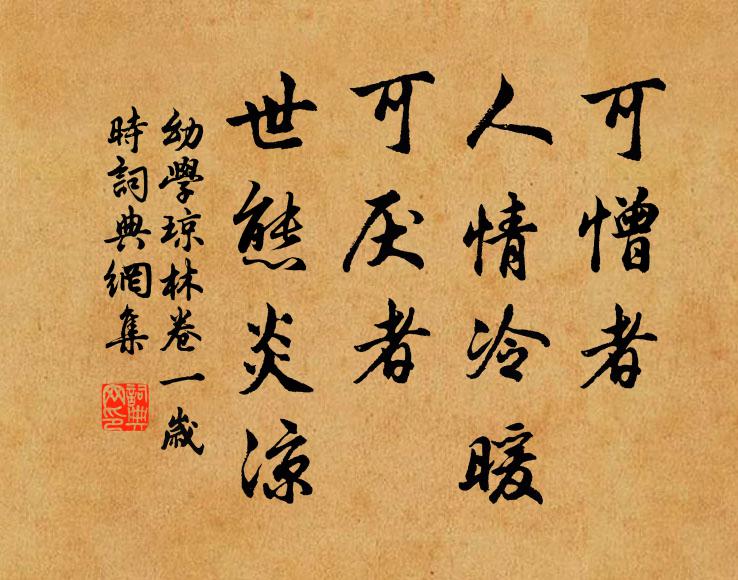 可憎者
人情冷暖
可厌者
世態炎凉
幼學琼林卷一歲
時詞典網集
詞典网印